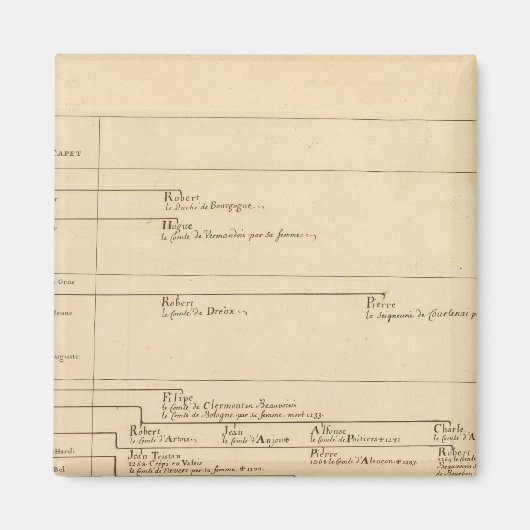 CAPET
Robert
le Duché de Bourgogne
Hugue
le Comté de Vermandois par sa femme
Gros
Robert
le Comté de Dreux
Pierre
la Seigneurie de Courtenai
Jeune
Auguste
Filipe
le Comté de Clermont en Beauvoisis
le Comté de Bologne par sa femme mort 1233.
Robert
le Comté d'Artois
Jean
le Comté d'Anjou
Alfonse
le Comté de Poitiers
Charle
le Comté d'A
Hardi
Jean Tristan
1268. Crépi en Valois
le Comté de Nevers par sa femme + 1270.
Pierre
1268 le Comté d'Alençon
Robert
Beauvoisis
de Bourbon
Bel